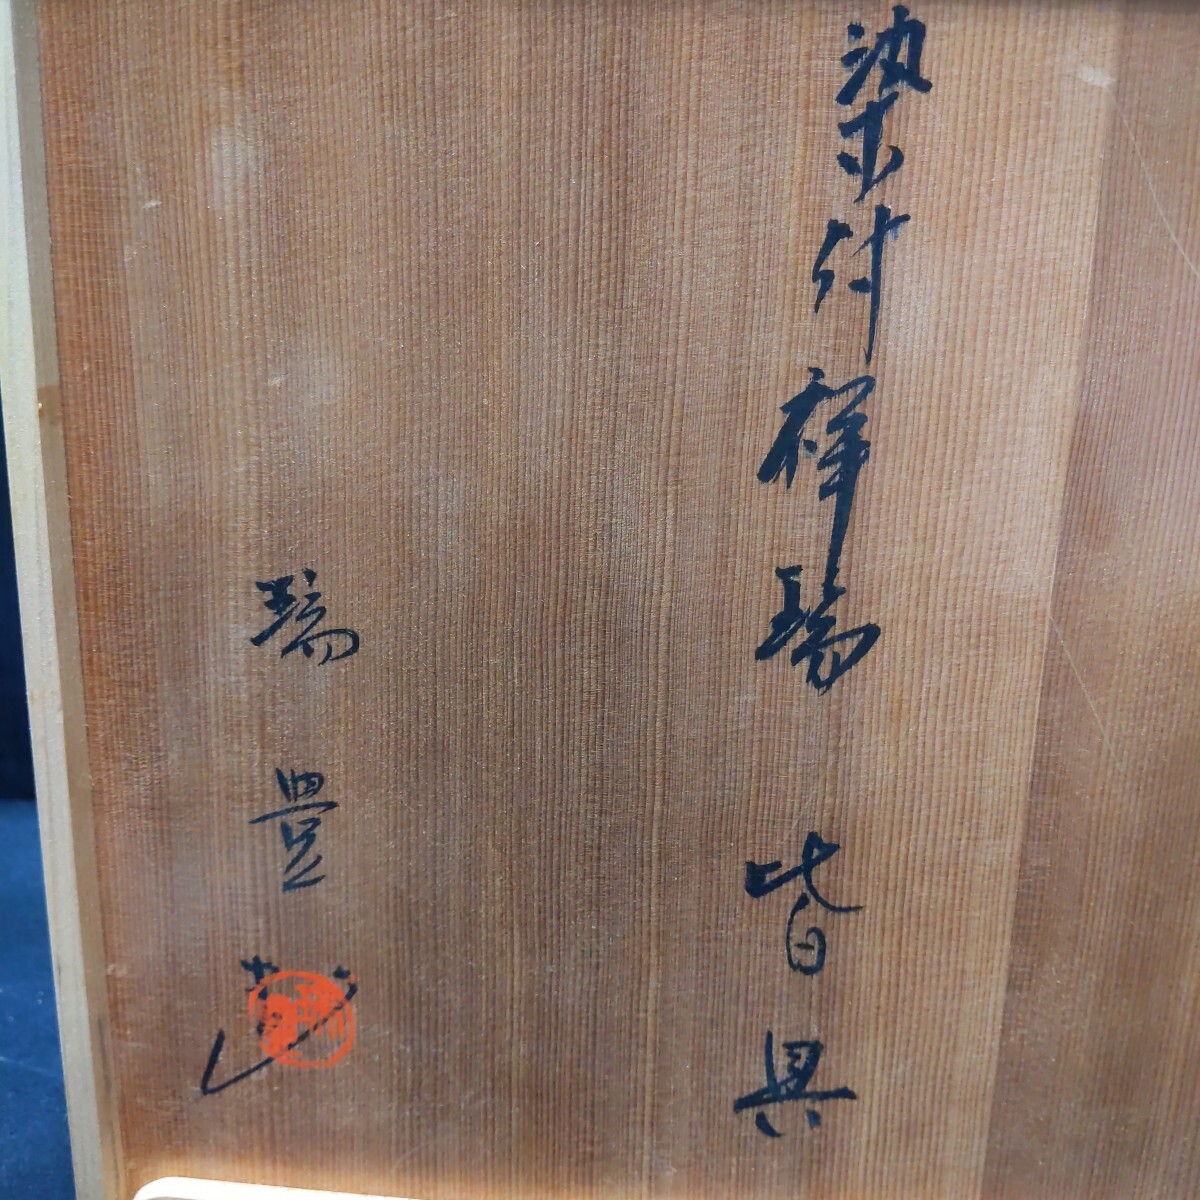 染付祥瑞 皆具
瑞豊